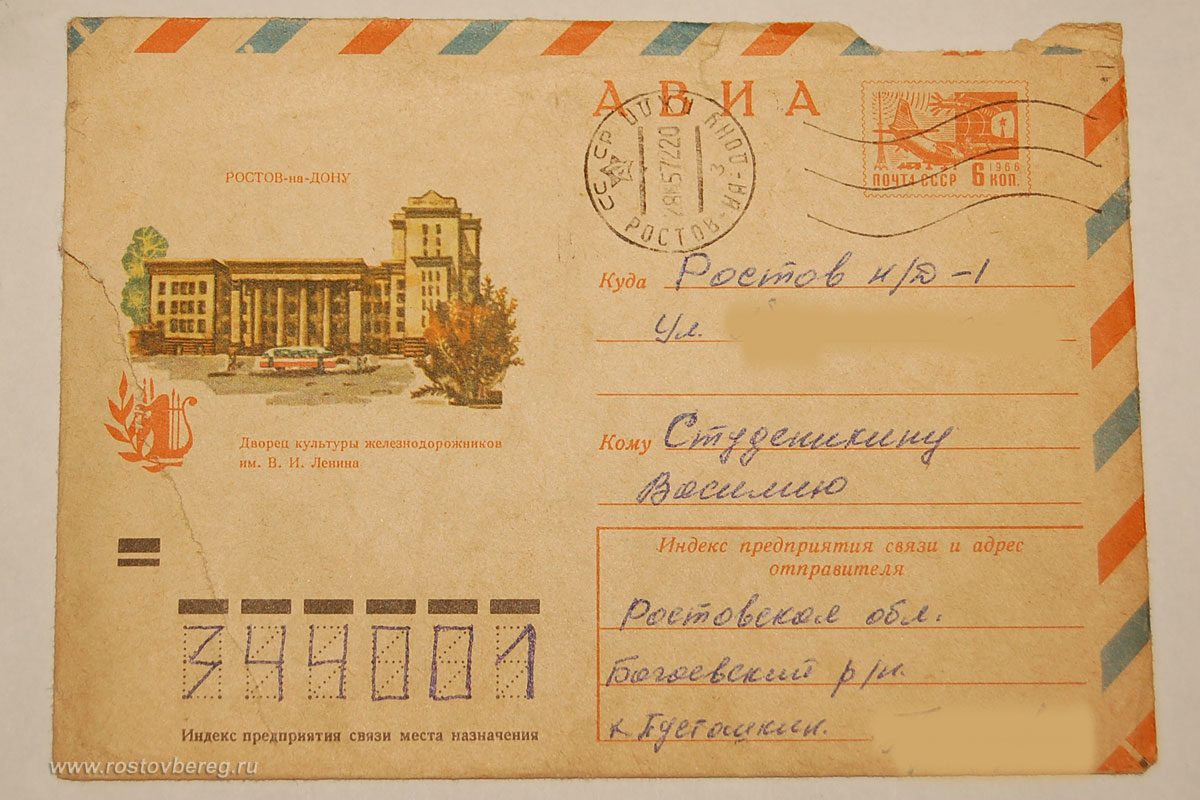 АВИА
РОСТОВ-на-ДОНУ
СССР
РОСТОВ-НА-ДОНУ
ПОЧТА СССР 6 КОП.
1966
Куда Ростов н/Д-1
ул.
Дворец культуры железнодорожников
им. В. И. Ленина
Кому Студеникину
Василию
Индекс предприятия связи и адрес
отправителя
Ростовская обл.
Багаевский р/н.
х. Пусташкин.
344001
Индекс предприятия связи места назначения
www.rostovbereg.ru